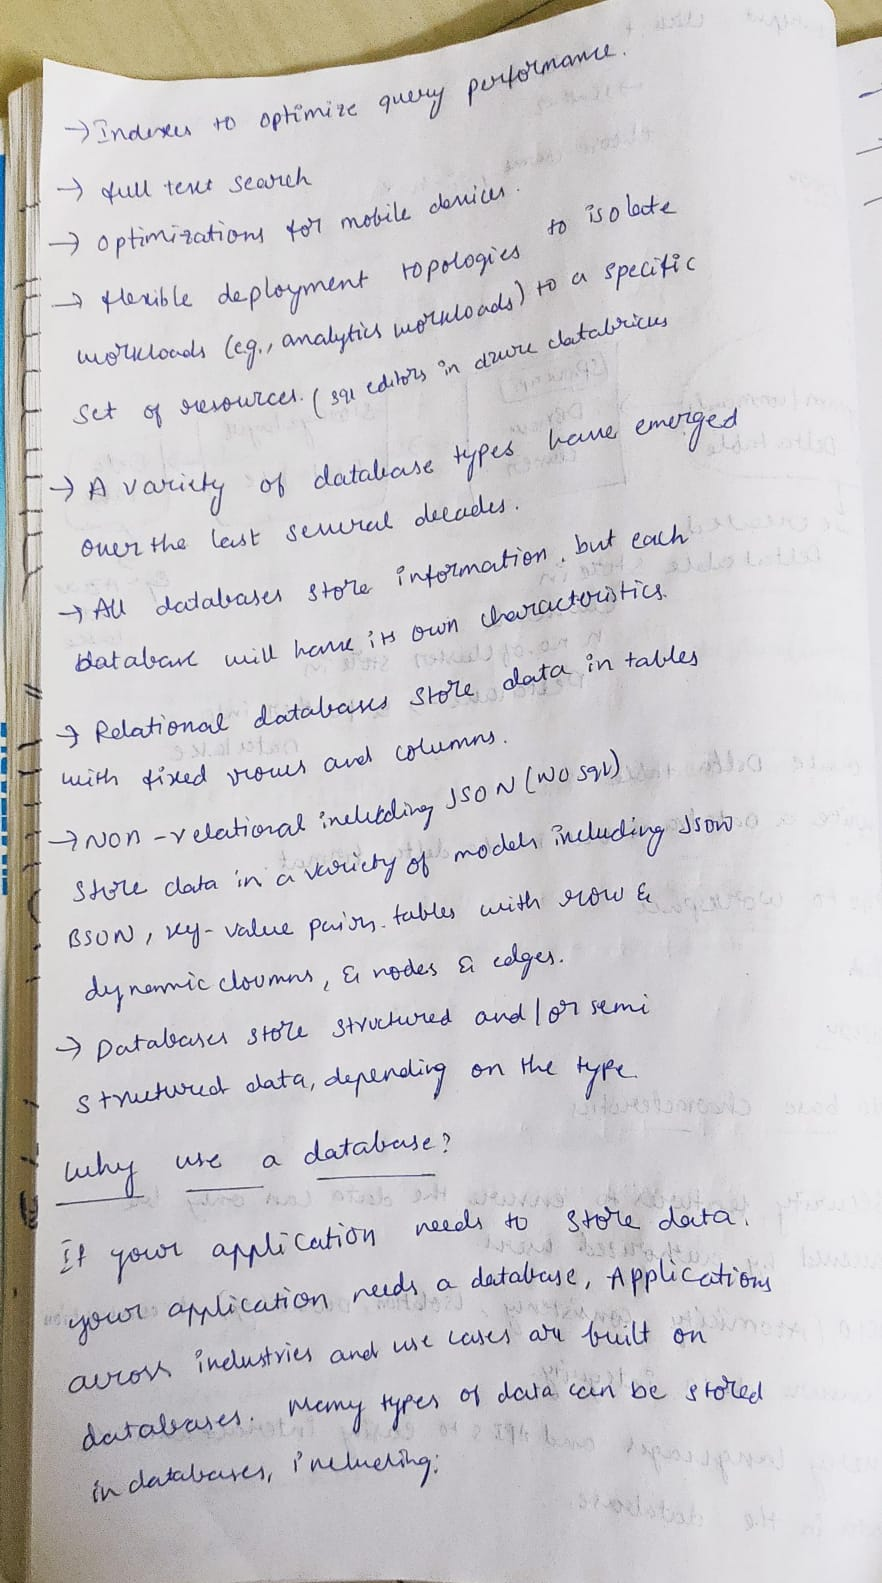 → Indexes to optimize query performance.
→ full text search
→ optimizations for mobile devices.
→ flexible deployment topologies to isolate
workloads (eg., analytics workloads) to a specific
set of resources. (sql editors in azure databricks
→ A variety of database types have emerged
over the last several decades.
→ All databases store information, but each
database will have its own characteristics.
→ Relational databases store data in tables
with fixed rows and columns.
→ Non-relational including JSON (NO sql)
store data in a variety of models including Json
BSON, key-value pairs. tables with row &
dynamic cloumns, & nodes & edges.
→ Databases store structured and/or semi
structured data, depending on the type.
Why use a database?
If your application needs to store data.
your application needs a database, Applications
across industries and use cases are built on
databases. Many types of data can be stored
in databases, including: